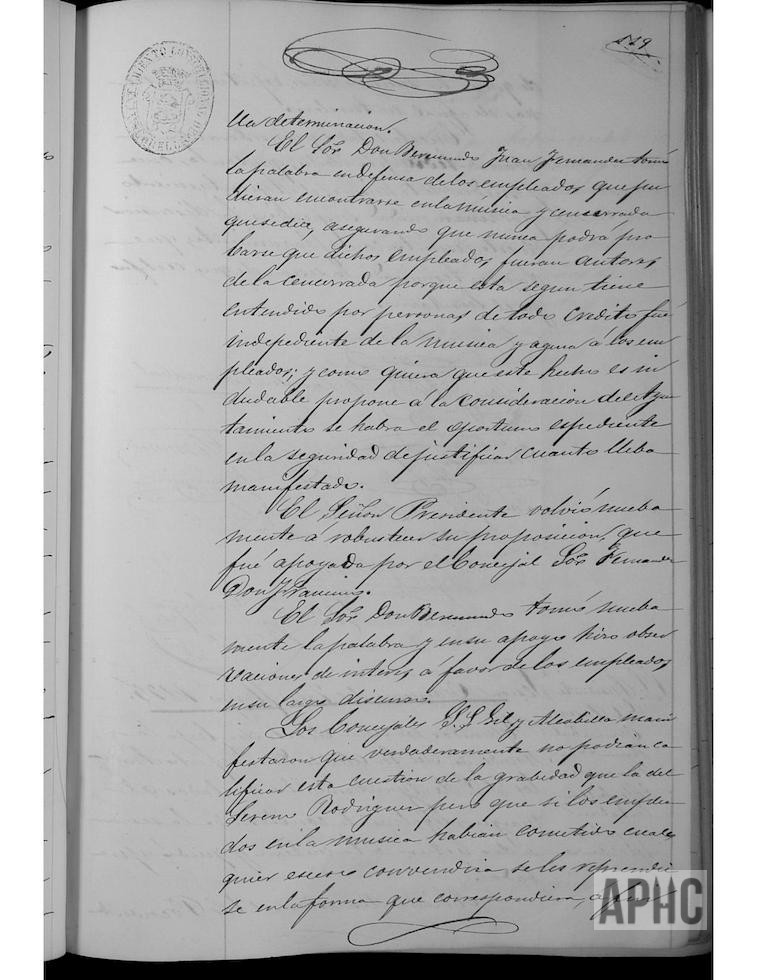 119
AYUNTAMIENTO CONSTITUCIONAL
lla determinacion.
El Sor Don Bermundo Juan Fernandez tomó
la palabra en defensa de los empleados que pu
dieran encontrarse en la música y cencerrada
que se dice, asegurando que nunca podrá pro
barse que dichos empleados fueran autores
de la cencerrada porque esta segun tiene
entendido por personas de todo credito fué
indepediente de la musica y agena a los em
pleados; y como quiera que este hecho es in
dudable propone á la consideracion del Ayun
tamiento se habra el oportuno espediente
en la seguridad de justificar cuanto lleba
manifestado.
El Señor Presidente volvió nueba
mente a robustecer su proposicion, que
fué apoyada por el Concejal Sor Fernandez
Don Francisco.
El Sor Don Bermundo tomó nueba
mente la palabra y en su apoyo hizo obser
vaciones de interes á favor de los empleados
en su largo discurso.
Los Concejales S.S. Gil y Alcobilla mani
festaron que verdaderamente no podian ca
lificar esta cuestion de la grabedad que la del
Sereno Rodriguez pero que si los emplea
dos en la musica habian cometido cual
quier esceso convendria se les reprendie
se en la forma que correspondiera, a fin
APHC